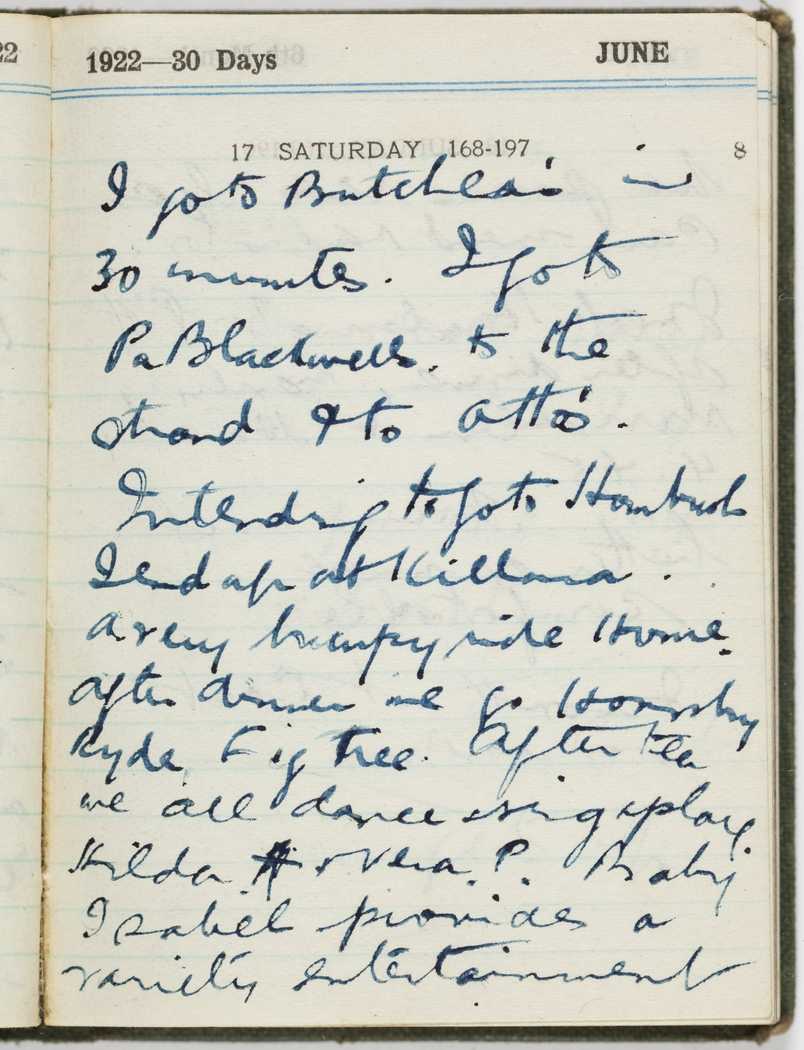 22
1922—30 Days JUNE
17 SATURDAY 168-197 8
I go to Butchla's in
30 minutes. I go to
Pa Blackwells, to the
strand & to Otto's.
Intending to go to Hombush
I end up at Killara.
A very bumpy ride Home.
After dinner we go Hornsby
Ryde, Fig Tree. After tea
we all dance sing & play
Hilda H & Vera P. Baby
Isabel provides a
variety entertainment